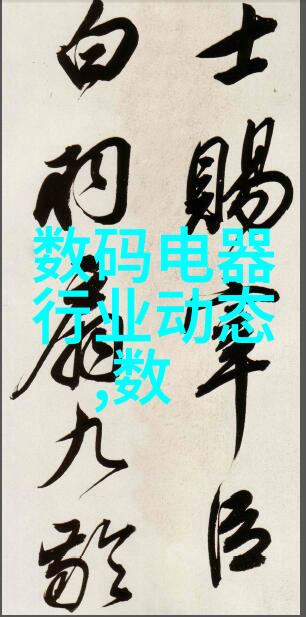 士賜宰臣
白羽扇九齡
数码电器
行业动态
,数